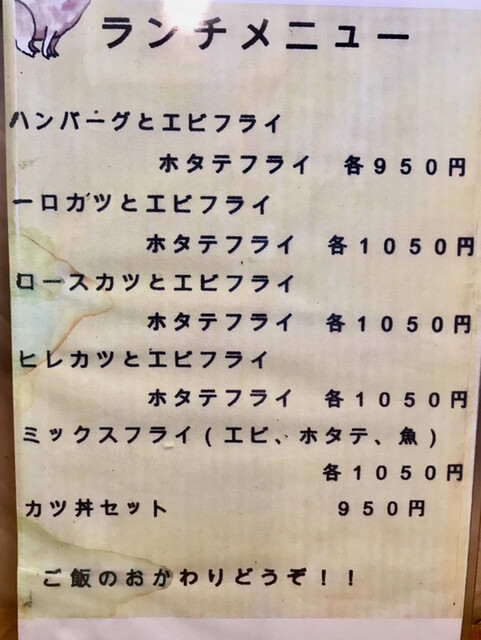 ランチメニュー
ハンバーグとエビフライ
ホタテフライ 各950円
一ロカツとエビフライ
ホタテフライ 各1050円
ロースカツとエビフライ
ホタテフライ 各1050円
ヒレカツとエビフライ
ホタテフライ 各1050円
ミックスフライ(エビ、ホタテ、魚)
各1050円
カツ丼セット 950円
ご飯のおかわりどうぞ!!